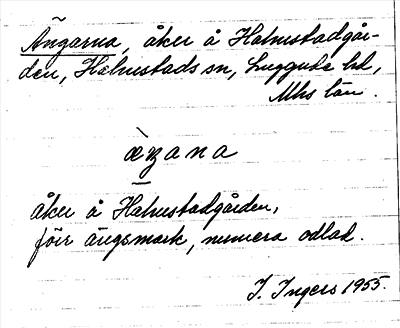 Ängarna, åker å Halmstadgår-
den, Halmstads sn, Luggude hd,
Mhs län.
æ̀ŋana
åker å Halmstadgården,
förr ängsmark, numera odlad.
I. Ingers 1955.